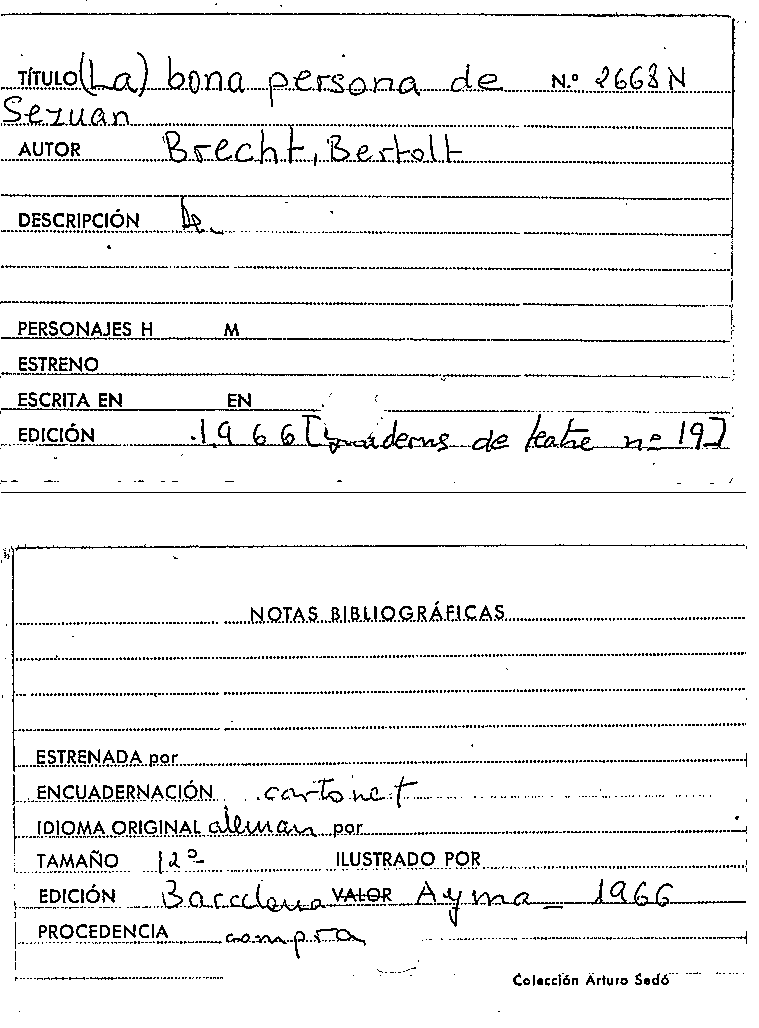 TÍTULO (La) bona persona de N.º 2668N
Sezuan
AUTOR Brecht, Bertolt
DESCRIPCIÓN
PERSONAJES H M
ESTRENO
ESCRITA EN EN
EDICIÓN 1966 [Quaderns de teatre nº 19]
NOTAS BIBLIOGRÁFICAS
ESTRENADA por
ENCUADERNACIÓN cartonet
IDIOMA ORIGINAL aleman por
TAMAÑO 12º ILUSTRADO POR
EDICIÓN Barcelona VALOR Ayma - 1966
PROCEDENCIA compra
Colección Arturo Sedó